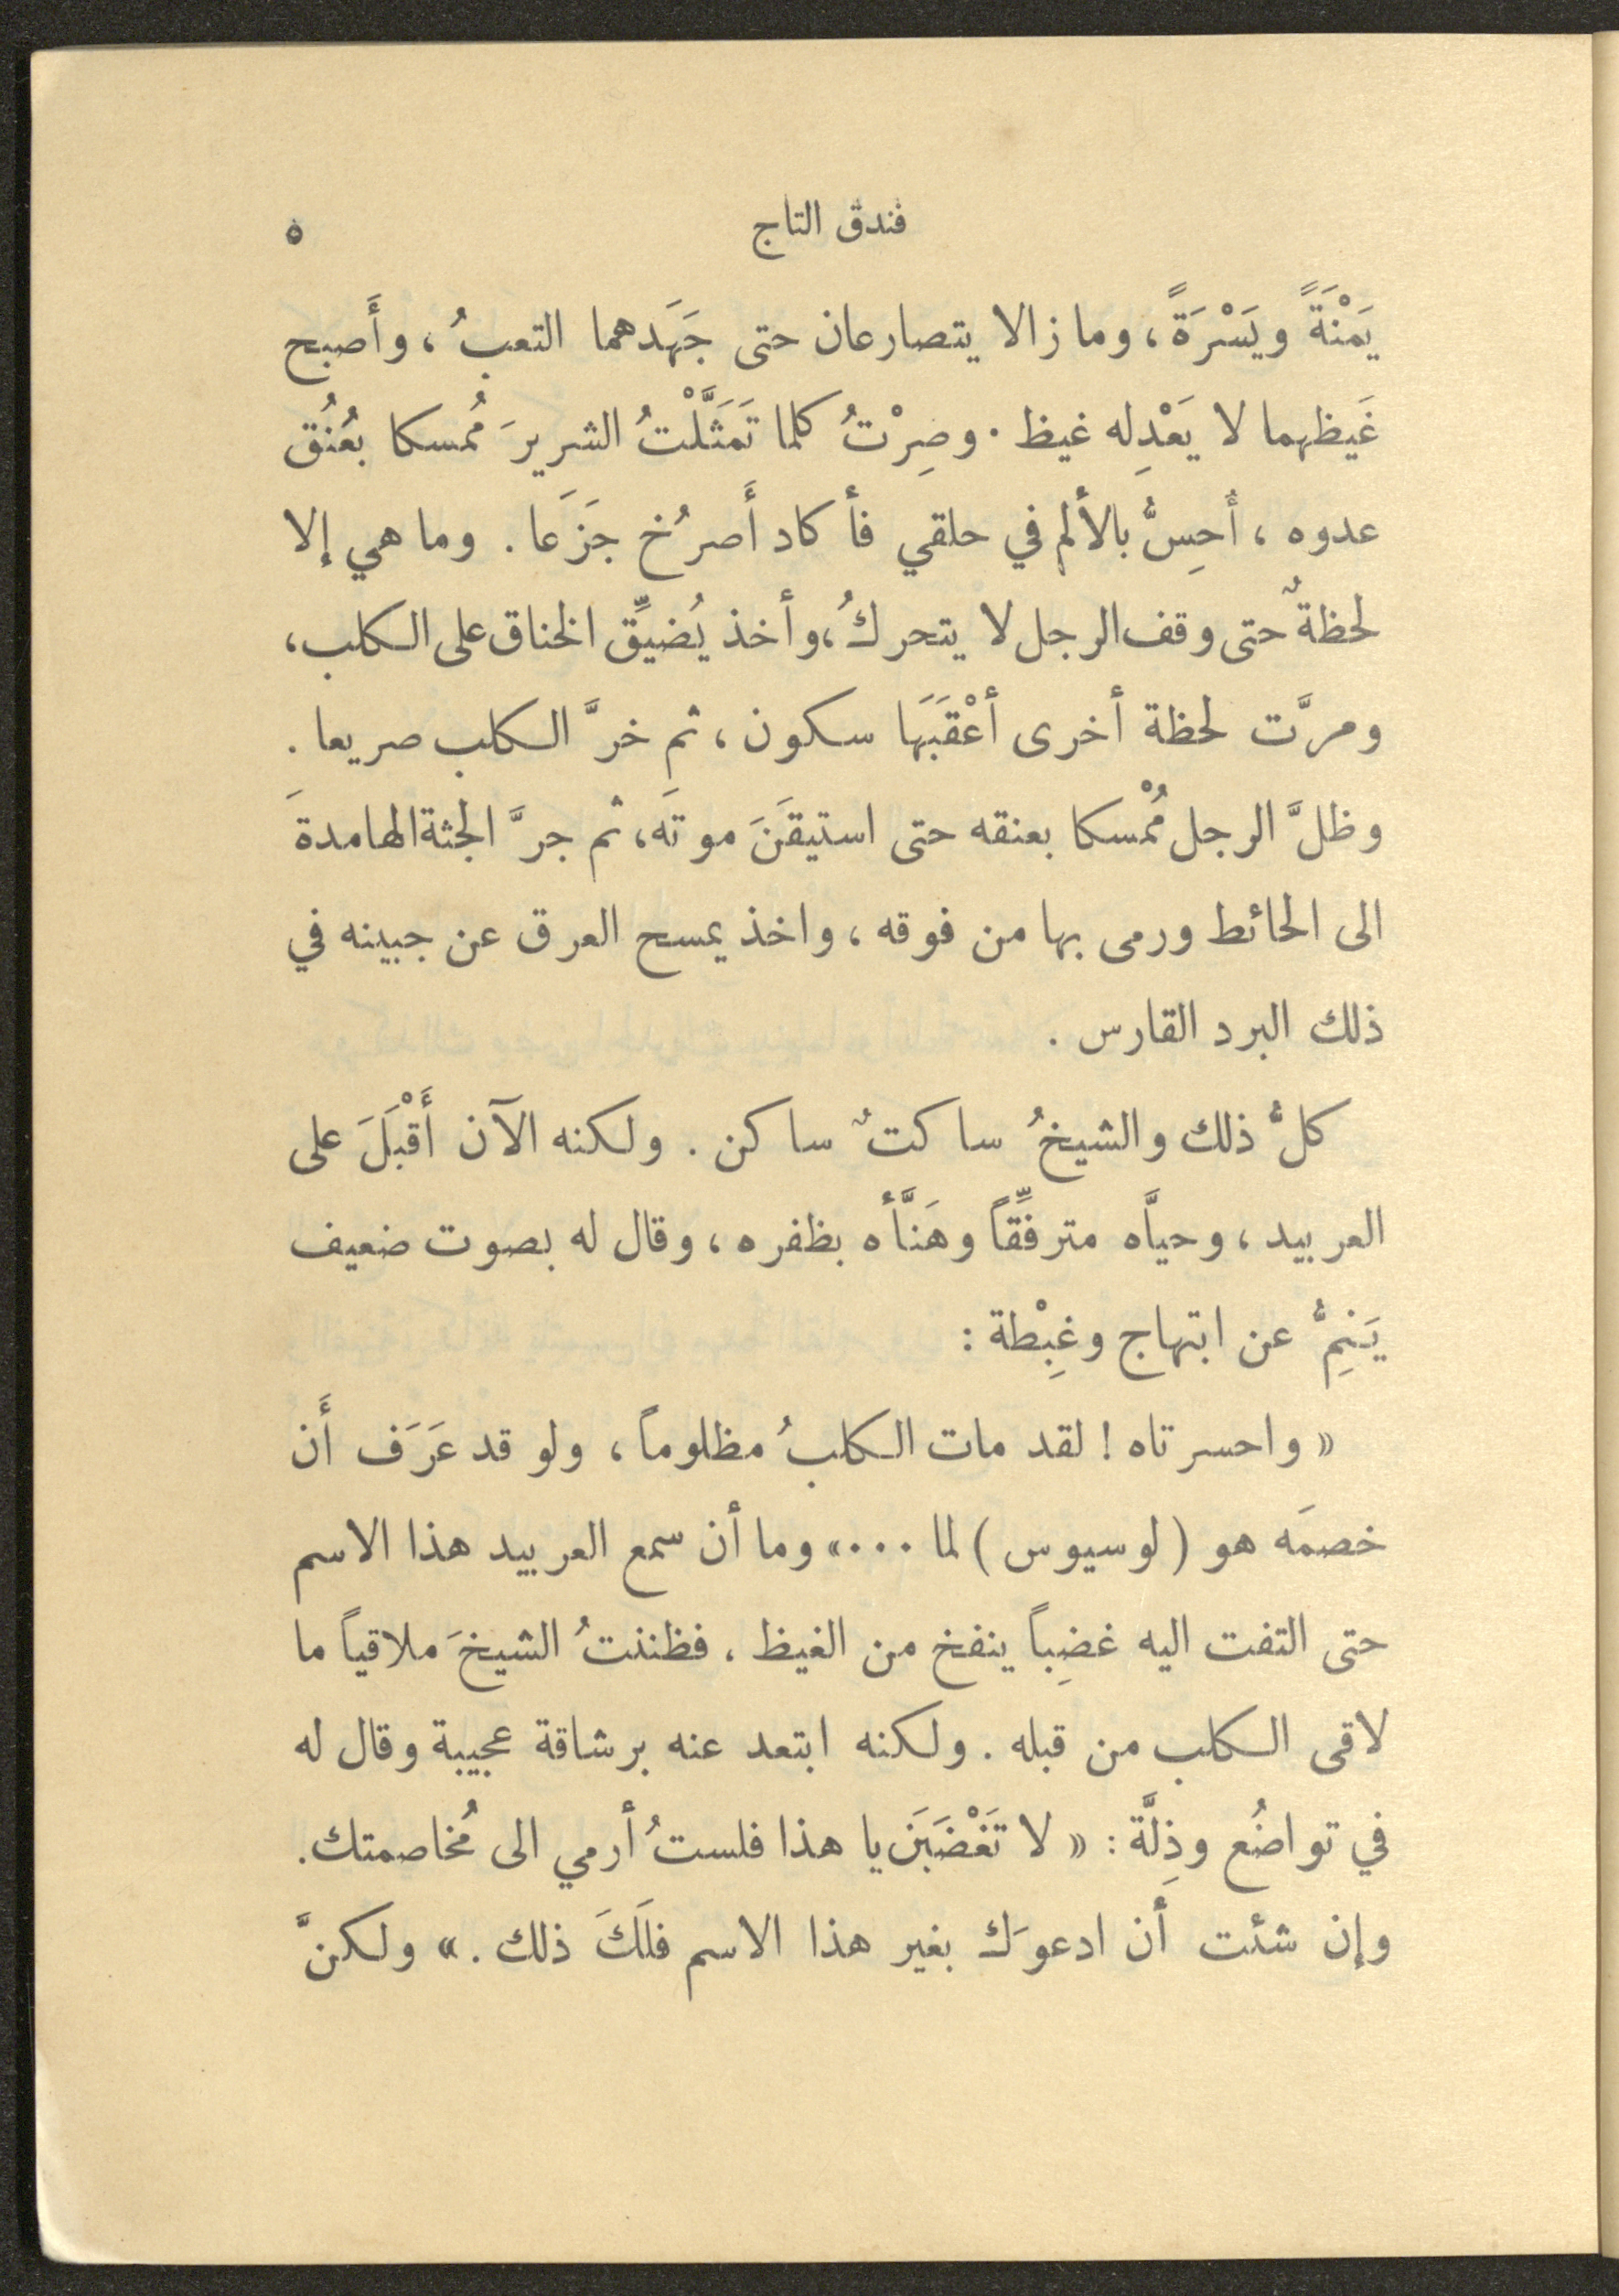 فندق التاج ٥
يَمْنَةً ويَسْرَةً، وما زالا يتصارعان حتى جَهَدهما التعبُ، وأَصبح
غَيظهما لا يَعْدِله غيظ. وصِرْتُ كلما تَمَثَّلْتُ الشريرَ مُمسكا بعُنُق
عدوه، أُحِسُّ بالألم في حلقي فأكاد أَصرُخ جَزَعا. وما هي إلا
لحظةٌ حتى وقف الرجل لا يتحركُ، وأخذ يُضيِّق الخناق على الكلب،
ومرَّت لحظة أخرى أعْقَبَهَا سكون، ثم خرَّ الكلب صريعا.
وظلَّ الرجل مُمْسكا بعنقه حتى استيقَنَ موتَه، ثم جرَّ الجثة الهامدةَ
الى الحائط ورمى بها من فوقه، واخذ يمسح العرق عن جبينه في
ذلك البرد القارس.
كلُّ ذلك والشيخُ ساكتٌ ساكن. ولكنه الآن أَقْبَلَ على
العربيد، وحيَّاه مترفِّقاً وهَنَّأه بظفره، وقال له بصوت ضعيف
يَنِمُّ عن ابتهاج وغِبْطة:
«واحسرتاه! لقد مات الكلبُ مظلوماً، ولو قد عَرَف أَن
خصمَه هو (لوسيوس) لما ...» وما أن سمع العربيد هذا الاسم
حتى التفت اليه غضِباً ينفخ من الغيظ، فظننتُ الشيخَ ملاقياً ما
لاقى الكلب من قبله. ولكنه ابتعد عنه برشاقة عجيبة وقال له
في تواضُع وذِلَّة: «لا تَغْضَبَن يا هذا فلستُ أرمي الى مُخاصمتك.
وإن شئت أن ادعوَك بغير هذا الاسم فلَكَ ذلك.» ولكنَّ